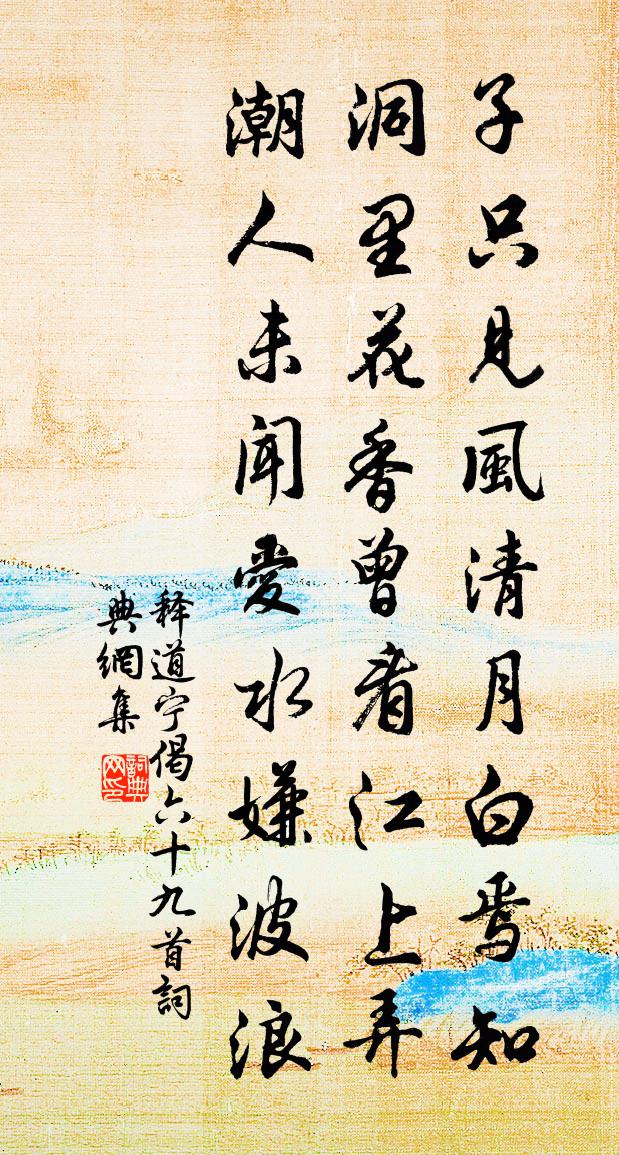 子只見風清月白焉知
洞里花香曾看江上弄
潮人未聞愛水嫌波浪
释道宁偈六十九首詞
典網集
詞典
网印